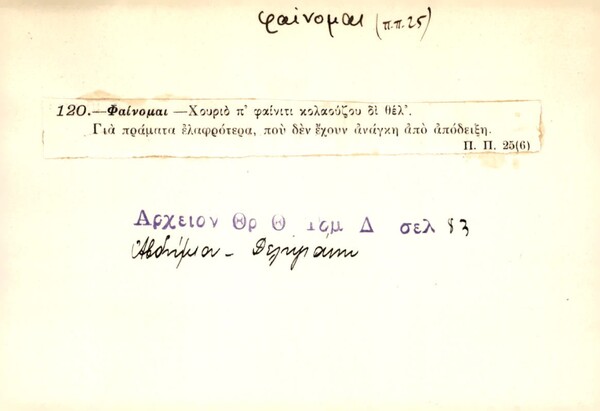 φαίνομαι (π.π.25)
120.—Φαίνομαι —Χουριὸ π' φαίνιτι κολαούζου δὶ θέλ'.
Γιὰ πράματα ἐλαφρότερα, ποὺ δὲν ἔχουν ἀνάγκη ἀπὸ ἀπόδειξη.
Π. Π. 25(6)
Αρχειον Θρ Θ Τομ Δ σελ 83